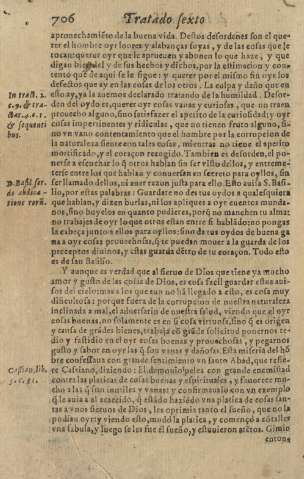 706 Tratado sexto
aprouechamiẽto de la buena vida. Destos desordenes son el que-
rer el hombre oyr loores y alabanças suyas, y de las cosas que le
tocan: querer oyr que le aprueuen y abonen lo que haze, y que
digan bien del y de sus hechos y dichos, por la estimacion y con-
tento que de aqui se le sigue: y querer por el mismo fin oyr los
defectos que ay en las cosas de los otros. La culpa y daño que en
In tract. 2.
c.9. & tra-
& sequenti
bus.
esto ay, ya la auemos declarado tratando de la humildad. Desor-
den del oydo es, querer oyr cosas vanas y curiosas, que no traen
prouecho alguno, sino satisfazer al apetito de la curiosidad: y oyr
cosas impertinentes y ridiculas, que no tienen fruto alguno, si-
no vn vano contentamiento que el hombre por la corrupcion de
la naturaleza siente con tales cosas, mientras no tiene el apetito
mortificado, y el coraçon recogido. Tambien es desorden, el po-
nerse a escuchar lo que otros hablan sin ser visto dellos, y entreme-
terse entre los que hablan y conuersan en secreto para oyllos, sin
D. Basil. ser.
ser llamado dellos, ni auer razon justa para ello. Esto auisa S. Basi-
lio, por estas palabras: Guardate no des tus oydos a qualesquiera
que hablan, y dizen burlas, ni los apliques a oyr cuentos munda-
nos,
la cabeça juntos a ellos para oyllos; sino da tus oydos de buena ga
na a oyr cosas prouechosas, que te puedan mouer a la guarda de los
preceptos diuinos, y estas guarda dẽtro de tu coraçon. Todo esto
es de san Basilio.
Y aunque es verdad que al sieruo de Dios que tiene ya mucho
amor y gusto de las cosas de Dios, es cosa facil guardar estos aui-
sos
dificultosa: porque fuera de la corrupcion de nuestra naturaleza
inclinada a mal, el aduersario de nuestra salud, viendo que el oyr
cosas buenas, no solamente es en si cosa virtuosa, sino que es origen
y causa de grãdes bienes, trabaja cõ grãde solicitud ponernos te-
dio y fastidio en el oyr cosas buenas y prouechosas, y pegarnos
gusto y sabor en oyr las que son vanas y dañosas. Esta miseria del hõ
bre confessaua con grande sentimiento vn santo Abad, que refie-
Cassian. lib.
5. c. 31.
re Cassiano, diziendo: El demonio pelea con grande enemistad
contra las platicas de cosas buenas y espirituales, y fauorece mu-
cho a las que son inutiles y vanas: y confirmaua lo con vn exemplo
que le auia a el acaecido, que estãdo hazẽdo vna platica de cosas san-
tas a vnos sieruos de Dios, les oprimio tanto el sueño, que no la
podian oyr: y viendo esto, mudò la platica, y començò a cõtalles
vna fabula, y luego se les fue el sueño, y estuuieron atẽtos. Gimio
entonc